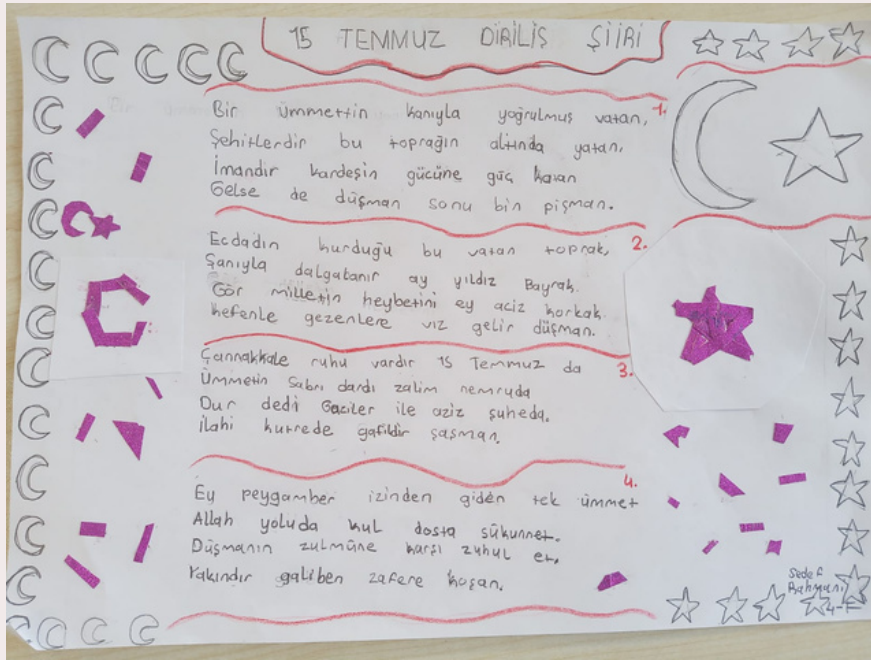 15 TEMMUZ DİRİLİŞ ŞİİRİ
1.
Bir ümmettin kanıyla yoğrulmuş vatan,
Şehitlerdir bu toprağın altında yatan,
İmandır kardeşin gücüne güç katan
Gelse de düşman sonu bin pişman.
2.
Ecdadın kurduğu bu vatan toprak,
Şanıyla dalgabanır ay yıldız Bayrak.
Gör milletin heybetini ey aciz korkak
kefenle gezenlere vız gelir düşman.
3.
Çannakkale ruhu vardır 15 Temmuz da
Ümmetin sabrı dardı zalim nemruda
Dur dedi Gaciler ile aziz şuheda.
ilahi kutrede gafildir şaşman.
4.
Ey peygamber izinden giden tek ümmet
Allah yoluda kul dosta sükunnet.
Düşmanın zulmüne karşı zuhul et,
Yakındır galiben zafere koşan.
Sedef
Rahmani
4-F